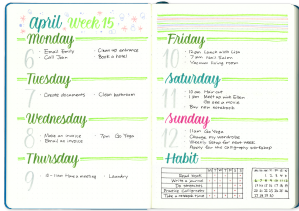 April Week 15
Monday
6
- Email Emily
- Call Jan
- Clean up entrance
- Book a hotel
Tuesday
7
- Create documents
- Clean bathroom
Wednesday
8
- Make an invoice
- Email an invoice
- 7pm Go Yoga
Thursday
9
- Laundry
Friday
10
- 12pm Lunch with Lisa
- Vacuum living room
Saturday
11
- 10am Hair cut
- 1pm Meet up with Ellen
Go see a movie
- Buy new notebook
Sunday
12
- 11am Go Yoga
- Change my wardrobe
- Weekly setup for next week
Habit
M T W T F S S
Read book
Write a journal
Do exercises
Practice Calligraphy